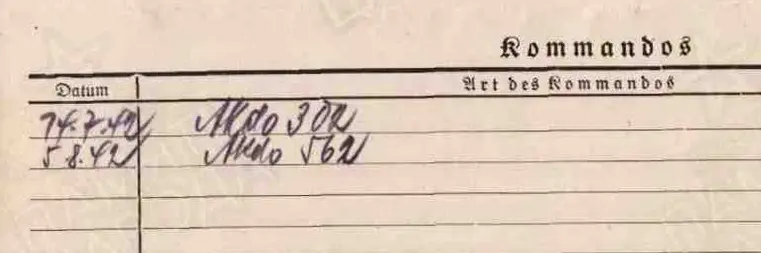 Kommandos
Datum Art des Kommandos
14.7.42 AKdo 302
5 8.42 AKdo 562